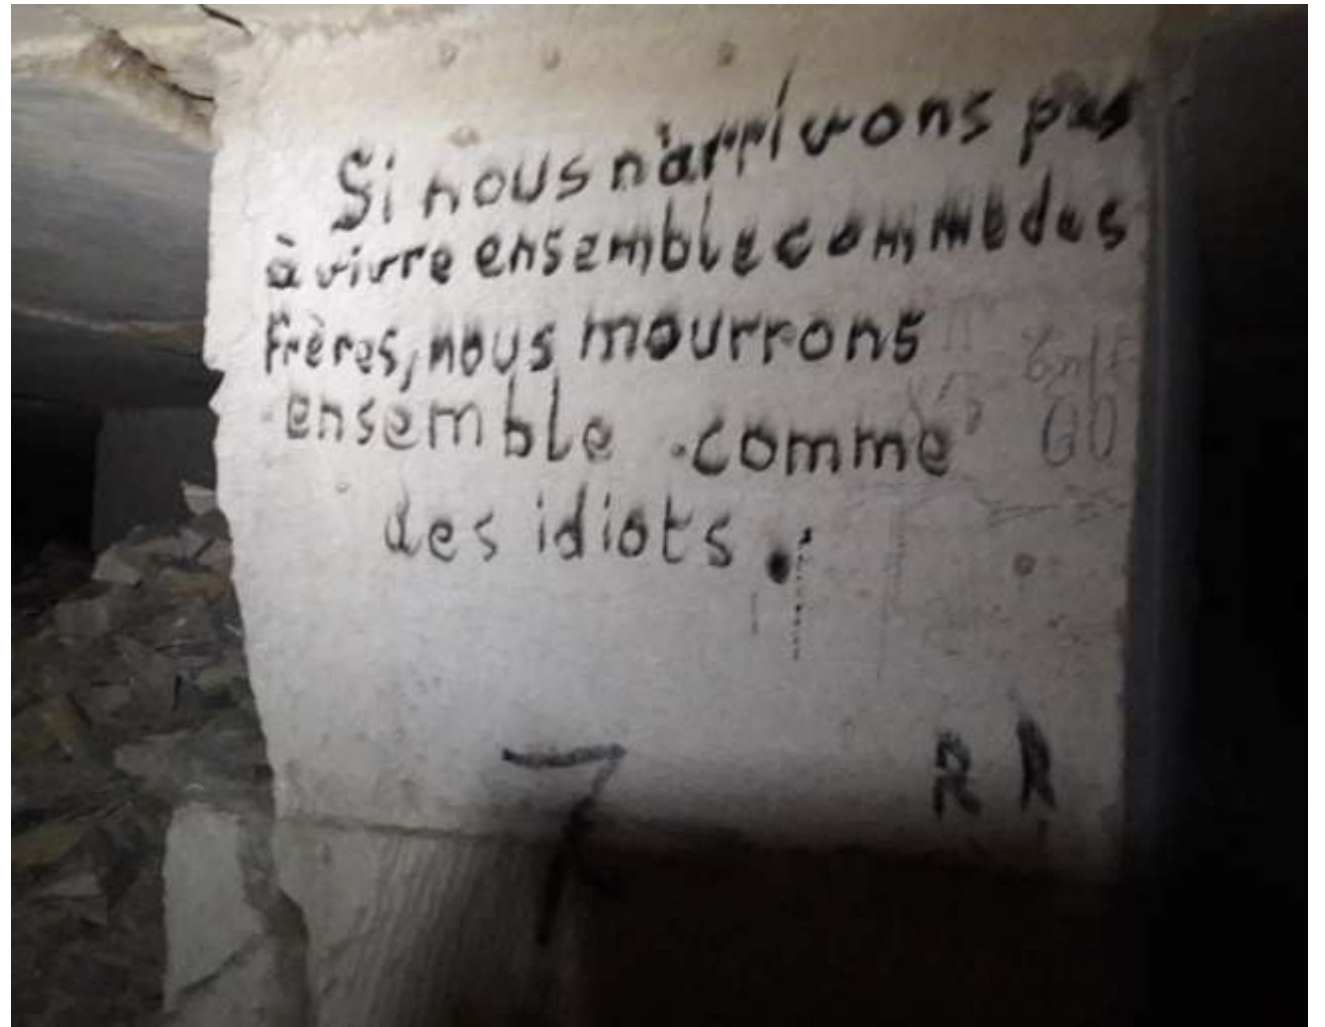 Si nous n'arrivons pas
à vivre ensemble comme des
frères, nous mourrons
ensemble comme
des idiots.
7
R R